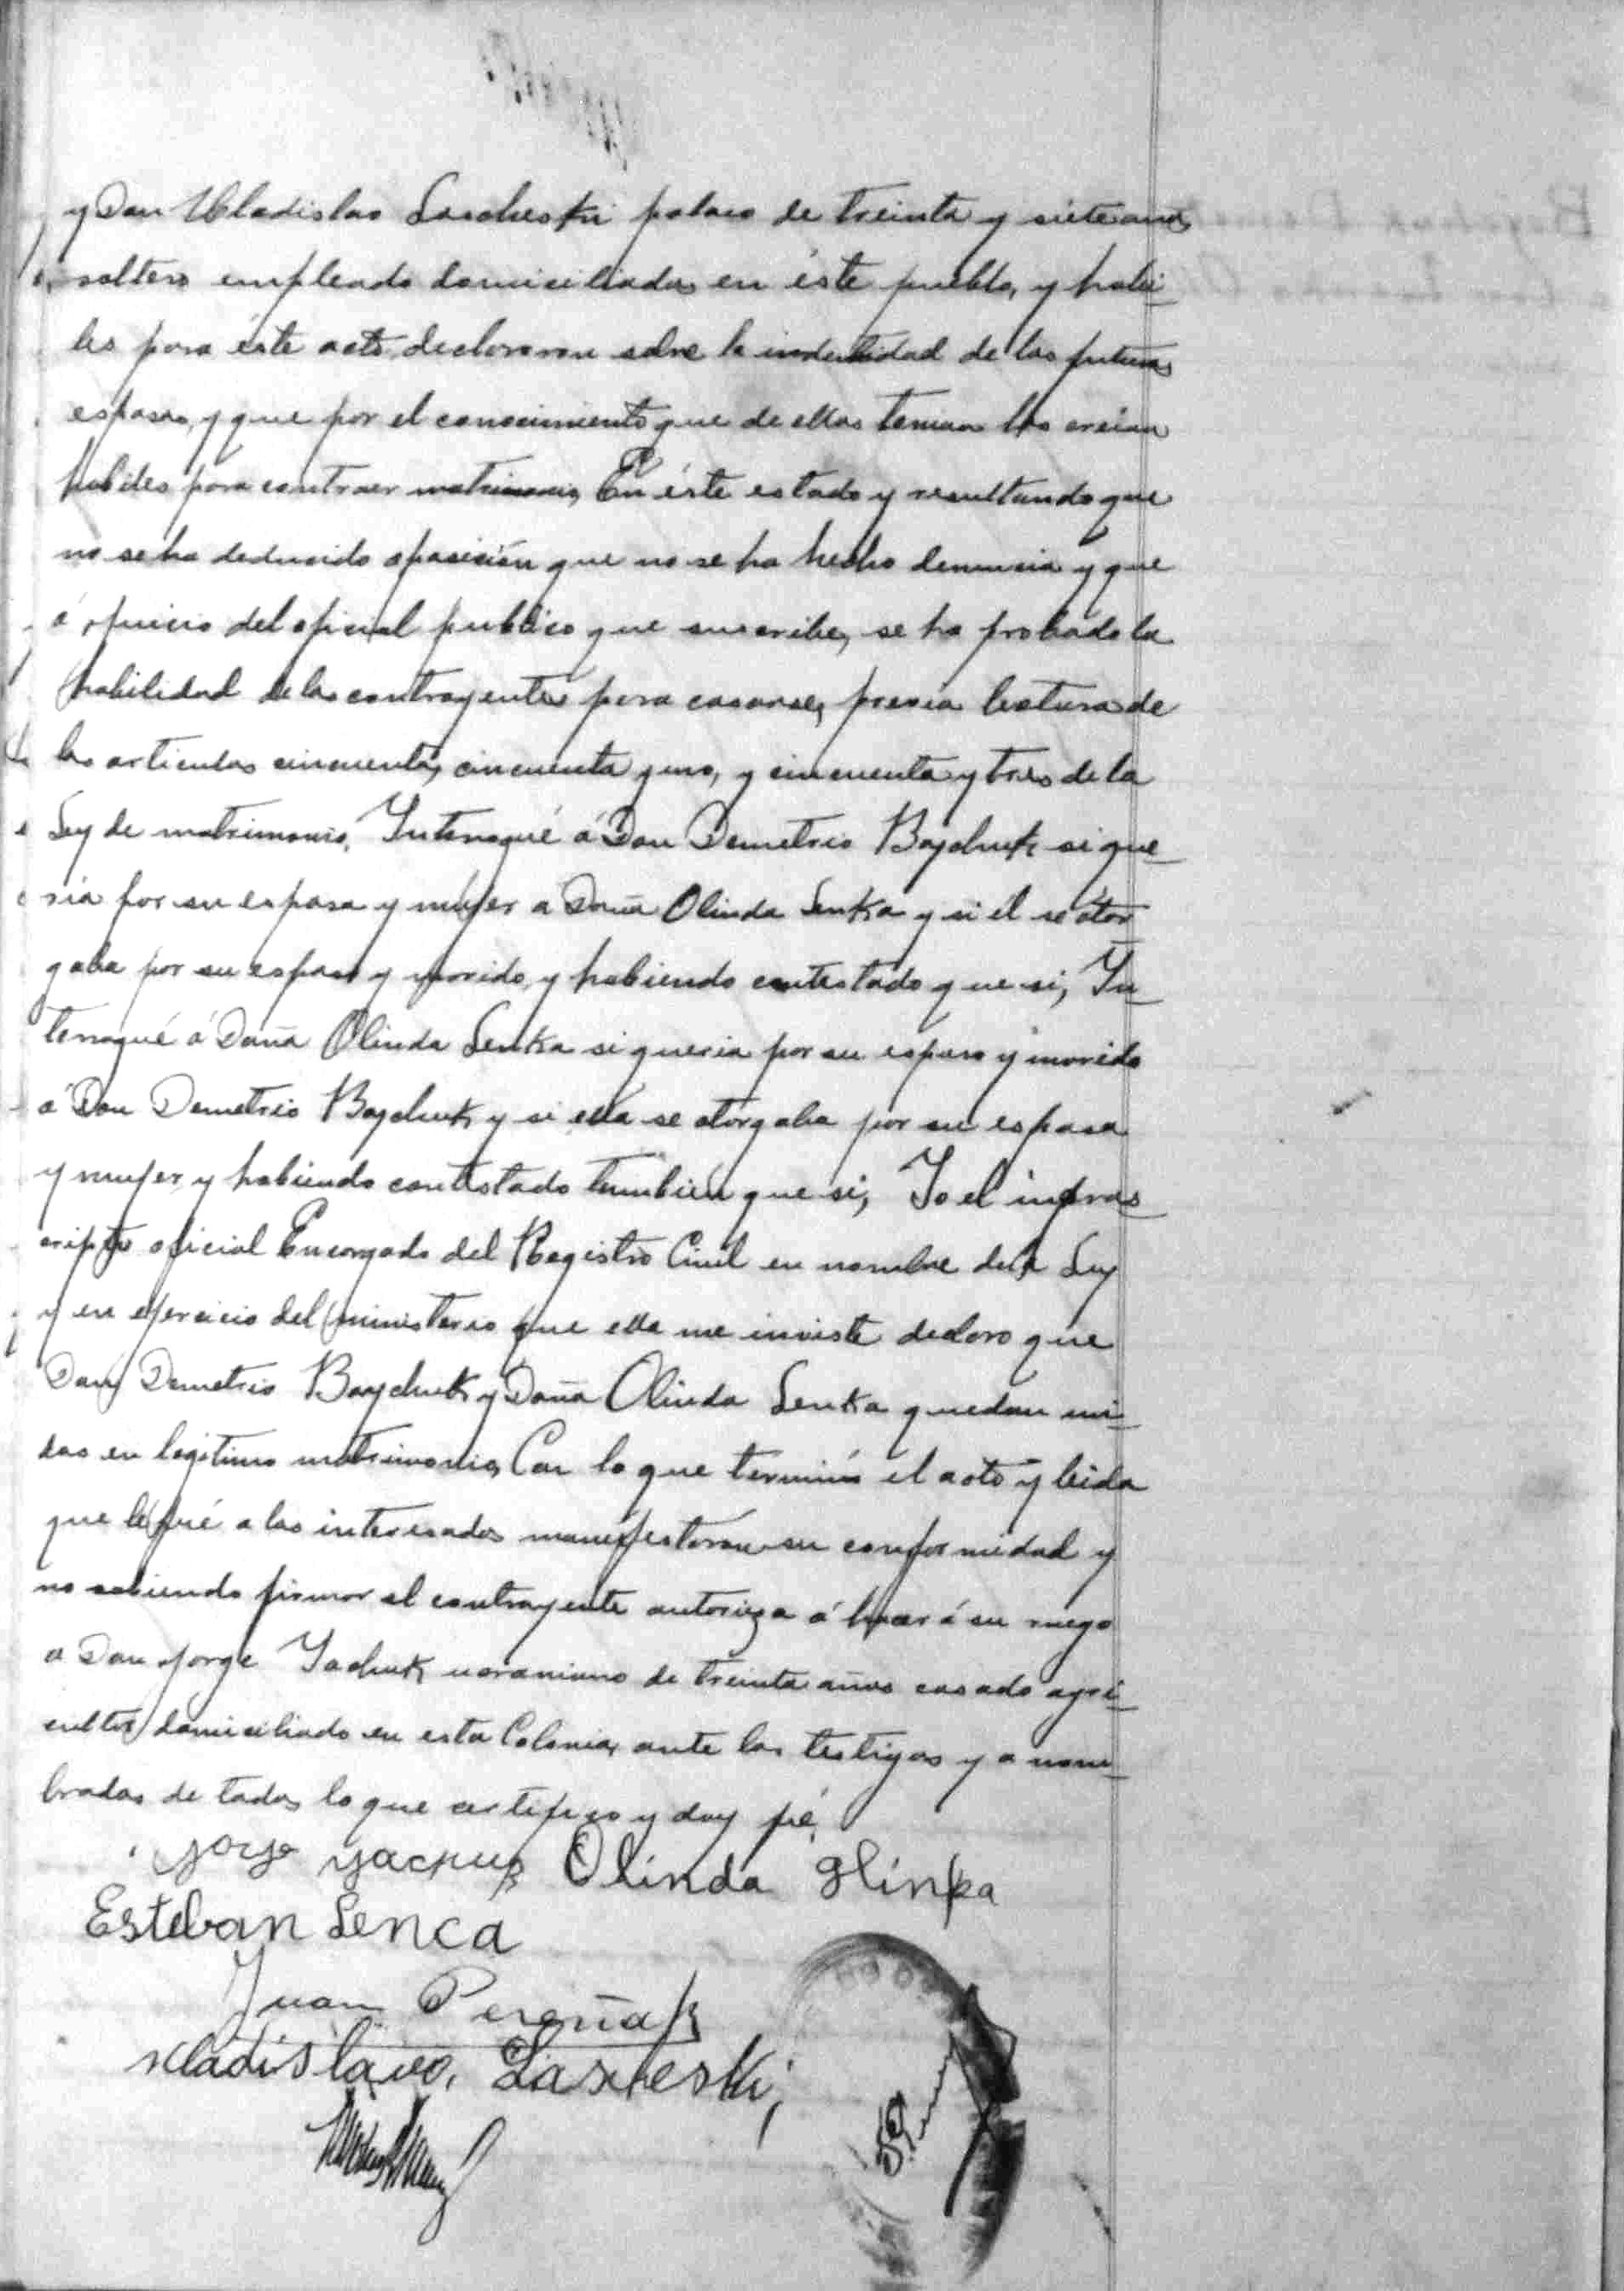 y Don Uladislao Lascheski polaco de treinta y siete años
soltero empleado domiciliados en éste pueblo, y habi-
les para éste acto, declararon sobre la indentidad de los futuros
esposos, y que por el conocimiento que de ellos tenian los creian
habiles para contraer matrimonio, En éste estado y resultando que
no se ha deducido oposición que no se ha hecho denuncia y que
á juicio del oficial publico que suscribe, se ha probado la
habilidad de los contrayentes para casarse, previa lectura de
los articulos cincuenta, cincuenta y uno, y cincuenta y tres de la
Ley de matrimonio, Interrogué á Don Demetrio Baychuk si que-
ria por su esposa y mujer a Doña Olinda Lenka y si el se otor
gaba por su esposo y marido, y habiendo contestado que si, In-
terrogué á Doña Olinda Lenka si queria por su esposo y marido
á Don Demetrio Baychuk y si ella se otorgaba por su esposa
y mujer, y habiendo contestado tambien que si, Yo el infras-
cripto oficial Encargado del Registro Civil en nombre de la Ley
y en ejercicio del ministerio que ella me inviste declaro que
Don Demetrio Baychuk y Doña Olinda Lenka quedan uni-
dos en legitimo matrimonio, Con lo que terminó el acto y leida
que le fué a los interesados manifestaron su conformidad y
no sabiendo firmar el contrayente autoriza á hacer á su ruego
a Don Jorge Yachuk ucraniano de treinta años casado agri-
cultor domiciliado en esta Colonia, ante los testigos y a nom-
brados de todos lo que certifico y doy fé,
Olinda Hinka
Esteban Lenca
Juan